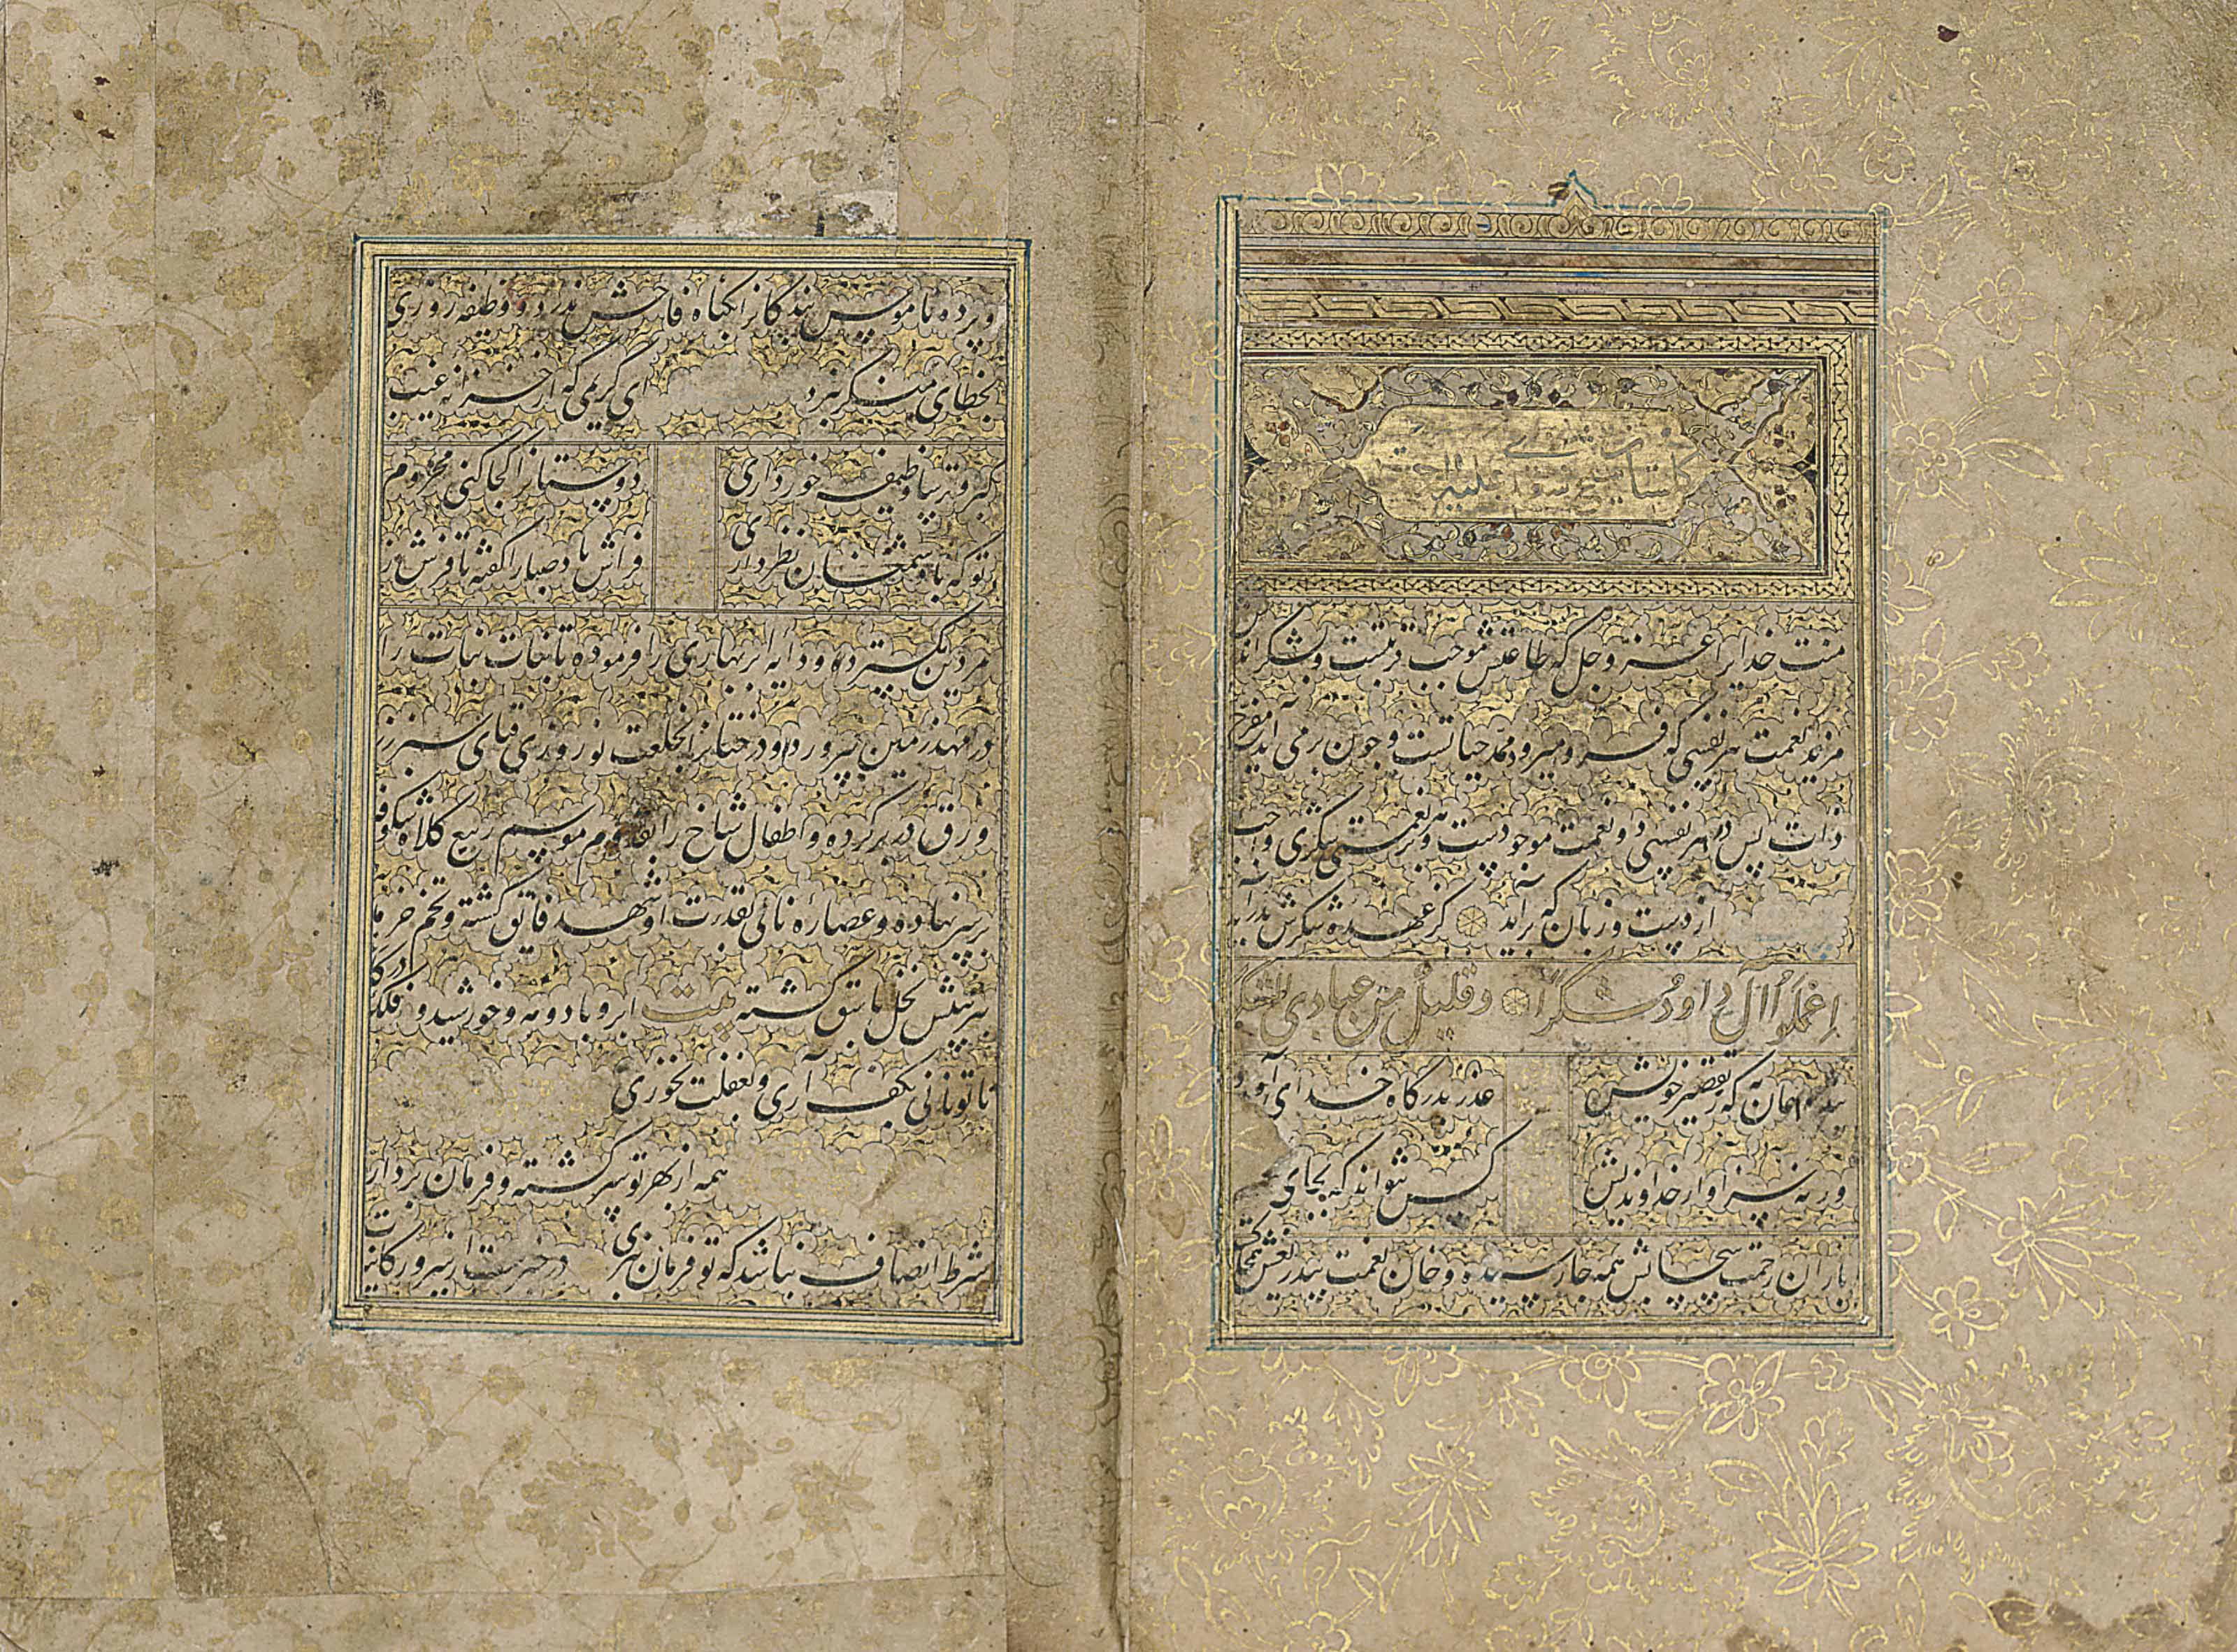 گلستان شیخ سعدی علیه الرحمة
منت خدایرا عز و جل که طاعتش موجب قربتست و بشکر اندرش
مزید نعمت هر نفسی که فرو میرود ممد حیاتست و چون برمی آید مفرح
ذات پس در هر نفسی دو نعمت موجودست و بر هر نعمتی شکری واجب
از دست و زبان که برآید کز عهده شکرش بدر آید
اِعْمَلُوا آلَ دَاودَ شکراً وقلیلٌ من عبادی الشکور
بنده همان به که ز تقصیر خویش عذر بدرگاه خدای آورد
ورنه سزاوار خداوندیش کس نتواند که بجای
باران رحمت بیحسابش همه جا رسیده و خان نعمت بیدریغش همه جا
و پرده ناموس بندگانرا بگناه فاحش ندرد و وظیفه روزی
بخطای منکر نبرد ای کریمی که از خزانه غیب
کبر و ترسا وظیفه خور داری دوستانرا کجا کنی محروم
تو که با دشمنان نظر داری فراش باد صبا را گفته تا فرش ز
مردین بگسترده و دایه ابر بهاری را فرموده تا بنات نبات را
در مهد زمین بپرورد و درختانرا بخلعت نوروزی قبای سبز
ورق در بر کرده و اطفال شاخ را بقدوم موسم ربیع کلاه شکوفه
بر سر نهاده و عصاره نائی بقدرت او شهد فائق گشته و تخم خرما
بتربیتش نخل باسق گشته بیت ابر و باد و مه و خورشید و فلک در کا
تا تو نانی بکف آری و بغفلت نخوری
همه از بهر تو سرگشته و فرمان بردار
شرط انصاف نباشد که تو فرمان نبری در خبرست از سرور کاینات